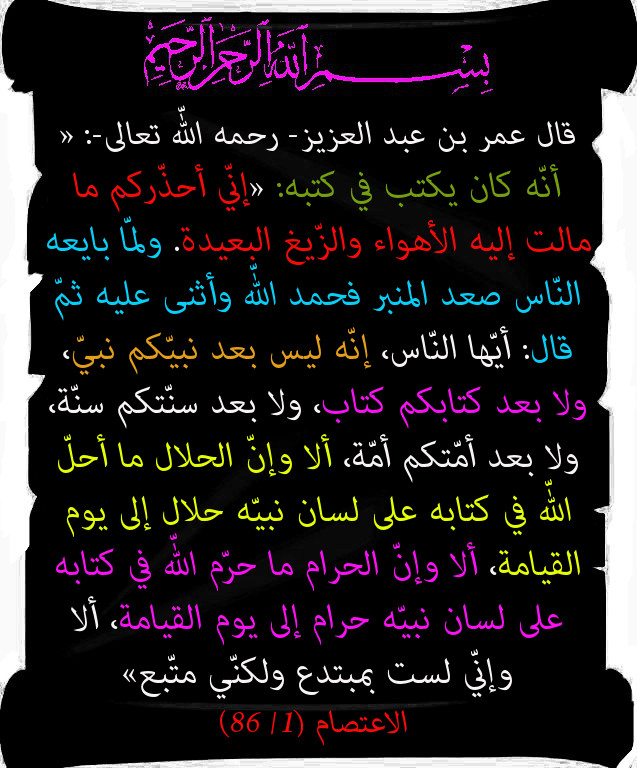 بسم الله الرحمن الرحيم
قال عمر بن عبد العزيز- رحمه اللّه تعالى-: «
أنّه كان يكتب في كتبه: «إنّي أحذّركم ما
مالت إليه الأهواء والزّيغ البعيدة. ولمّا بايعه
النّاس صعد المنبر فحمد اللّه وأثنى عليه ثمّ
قال: أيّها النّاس، إنّه ليس بعد نبيّكم نبيّ،
ولا بعد كتابكم كتاب، ولا بعد سنّتكم سنّة،
ولا بعد أمّتكم أمّة، ألا وإنّ الحلال ما أحلّ
اللّه في كتابه على لسان نبيّه حلال إلى يوم
القيامة، ألا وإنّ الحرام ما حرّم اللّه في كتابه
على لسان نبيّه حرام إلى يوم القيامة، ألا
وإنّي لست بمبتدع ولكنّي متّبع»
الاعتصام (1/ 86)